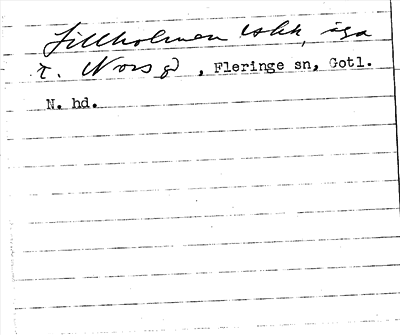 Lillholmen &kk, äga
t. Nors gd, Fleringe sn, Gotl.
N. hd.